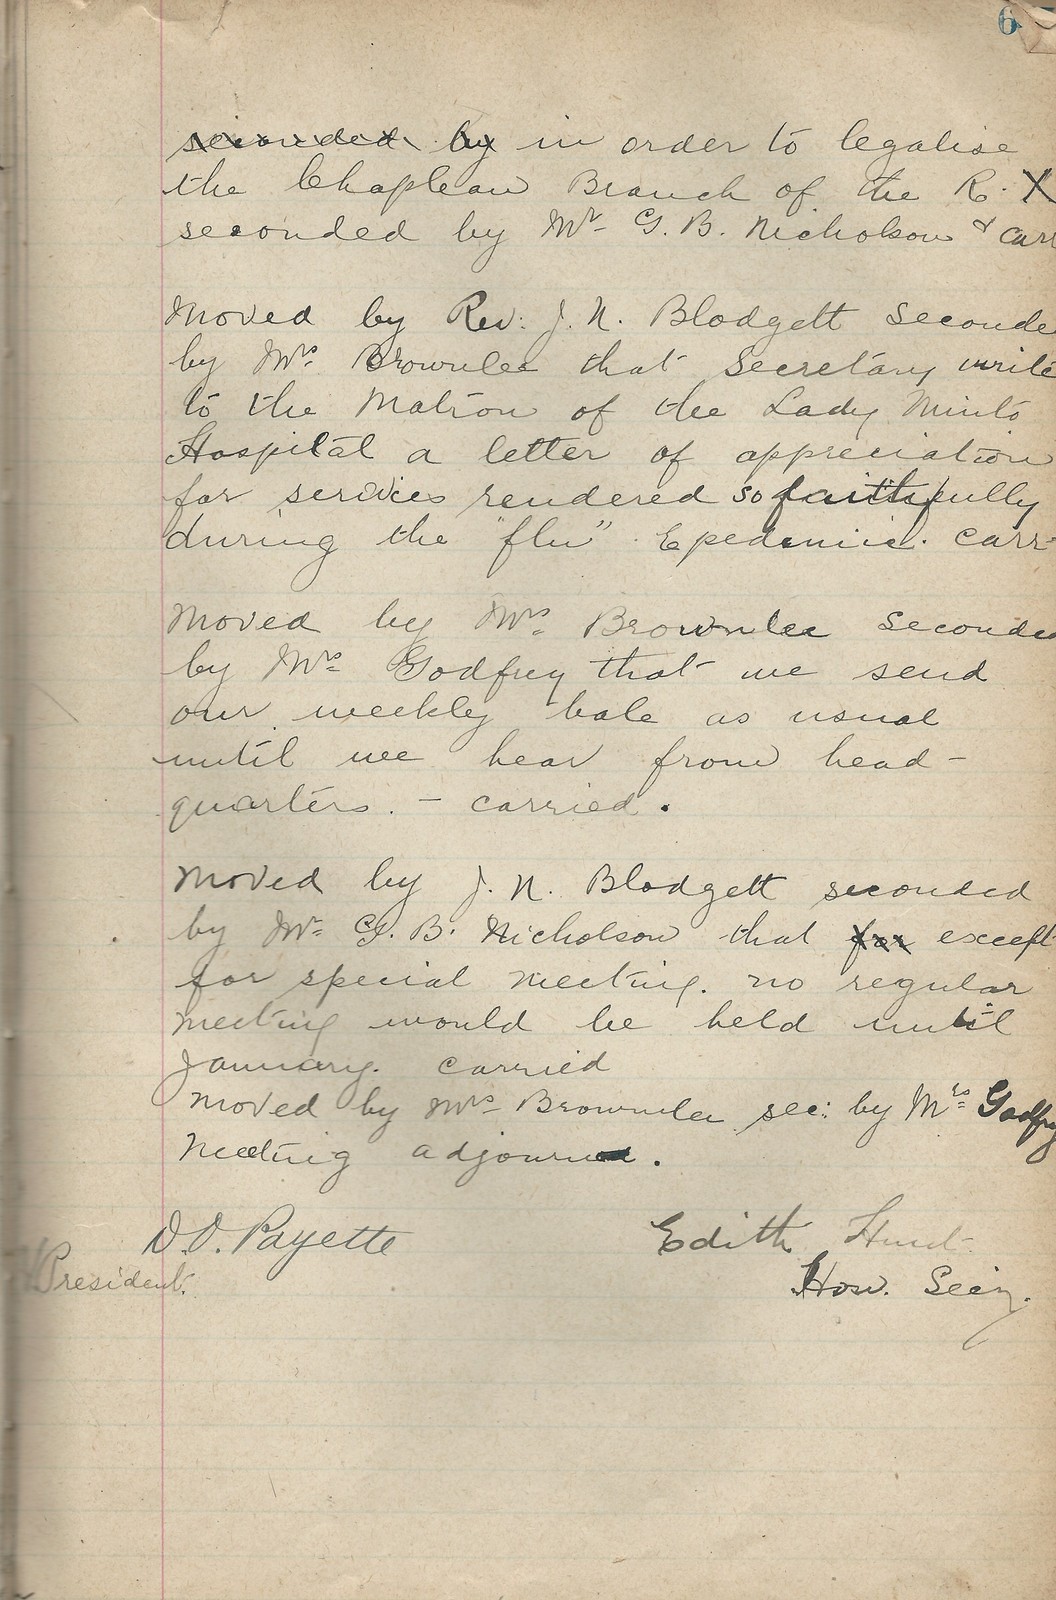 6
seconded by in order to legalise
the Chapleau Branch of the R. X
seconded by Mr. G. B. Nicholson & carr
Moved by Rev. J. N. Blodgett seconde
by Mrs. Brownlee that Secretary write
to the Matron of the Lady Minto
Hospital a letter of appreciation
for services rendered so faithfully
during the "flu" Epedemic. Carr
Moved by Mrs. Brownlee seconded
by Mrs. Godfrey that we send
our weekly bale as usual
until we hear from head-
quarters. - carried.
Moved by J. N. Blodgett seconded
by Mr. G. B. Nicholson that for except
for special meeting. no regular
meeting would be held until
January. carried
Moved by Mrs. Brownlee sec: by Mrs. Godfrey
Meeting adjourn.
D. O. Payette
Edith Hunt.
President.
Hon. Secy.